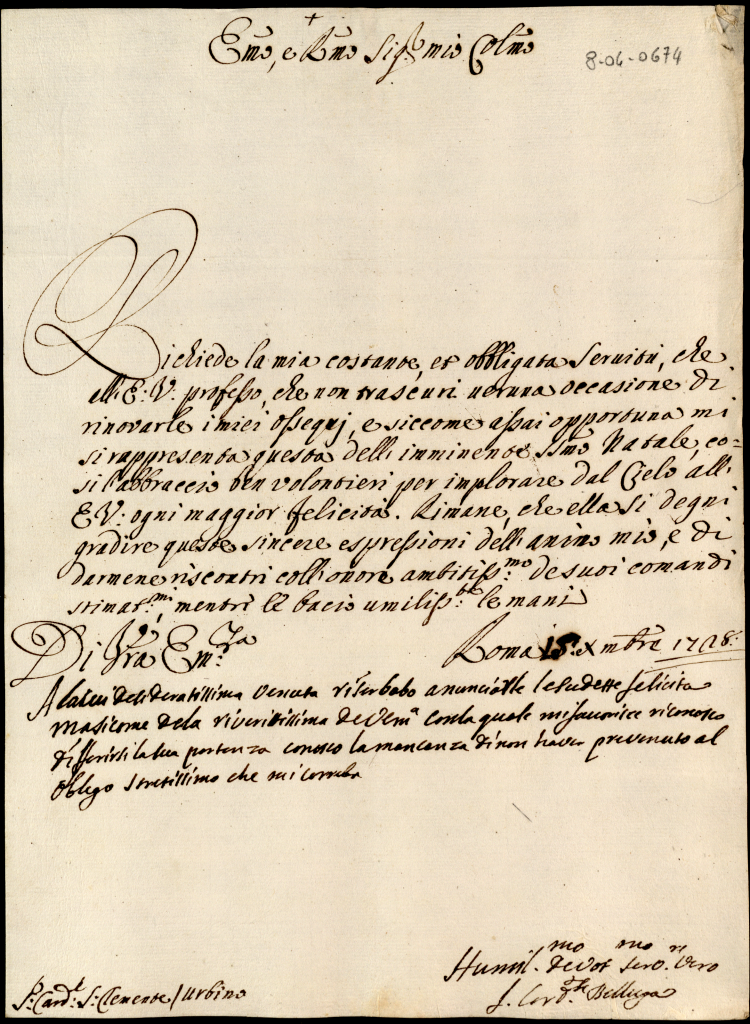 Emo, e Rmo Sig.r mio Colmo
8-06-0674
Richiede la mia costante, et obbligata Servitù, che
all'E: V: professo, che non trascuri veruna occasione di
rinovarle i miei ossequj, e siccome assai opportuna mi
si rappresenta questa dell'imminente SSmo Natale, co=
si l'abbraccio ben volontieri per implorare dal Cielo all'
E. V: ogni maggior felicità. Rimane, che ella si degni
gradire queste sincere espressioni dell'animo mio, e di
darmene riscontri coll'onore ambitiss.mo de suoi comandi
stimat.mi, mentre le bacio umiliss.te le mani
Di V.ra Em.za Roma 18. Xmbre 1728.
A la lui desideratissima venuta riserbabo anunciarle le sudette felicita
masicome dela riveritissima de V Em.a con la quale mi favorisce riconosco
differirsi la sua partenza conosco la mancanza di non haver prevenuto al
obligo stretissimo che mi correba
Humil.mo devot.mo Serv.r vero
S.r Card.l S: Clemente / Urbino L. Card.le Belluga